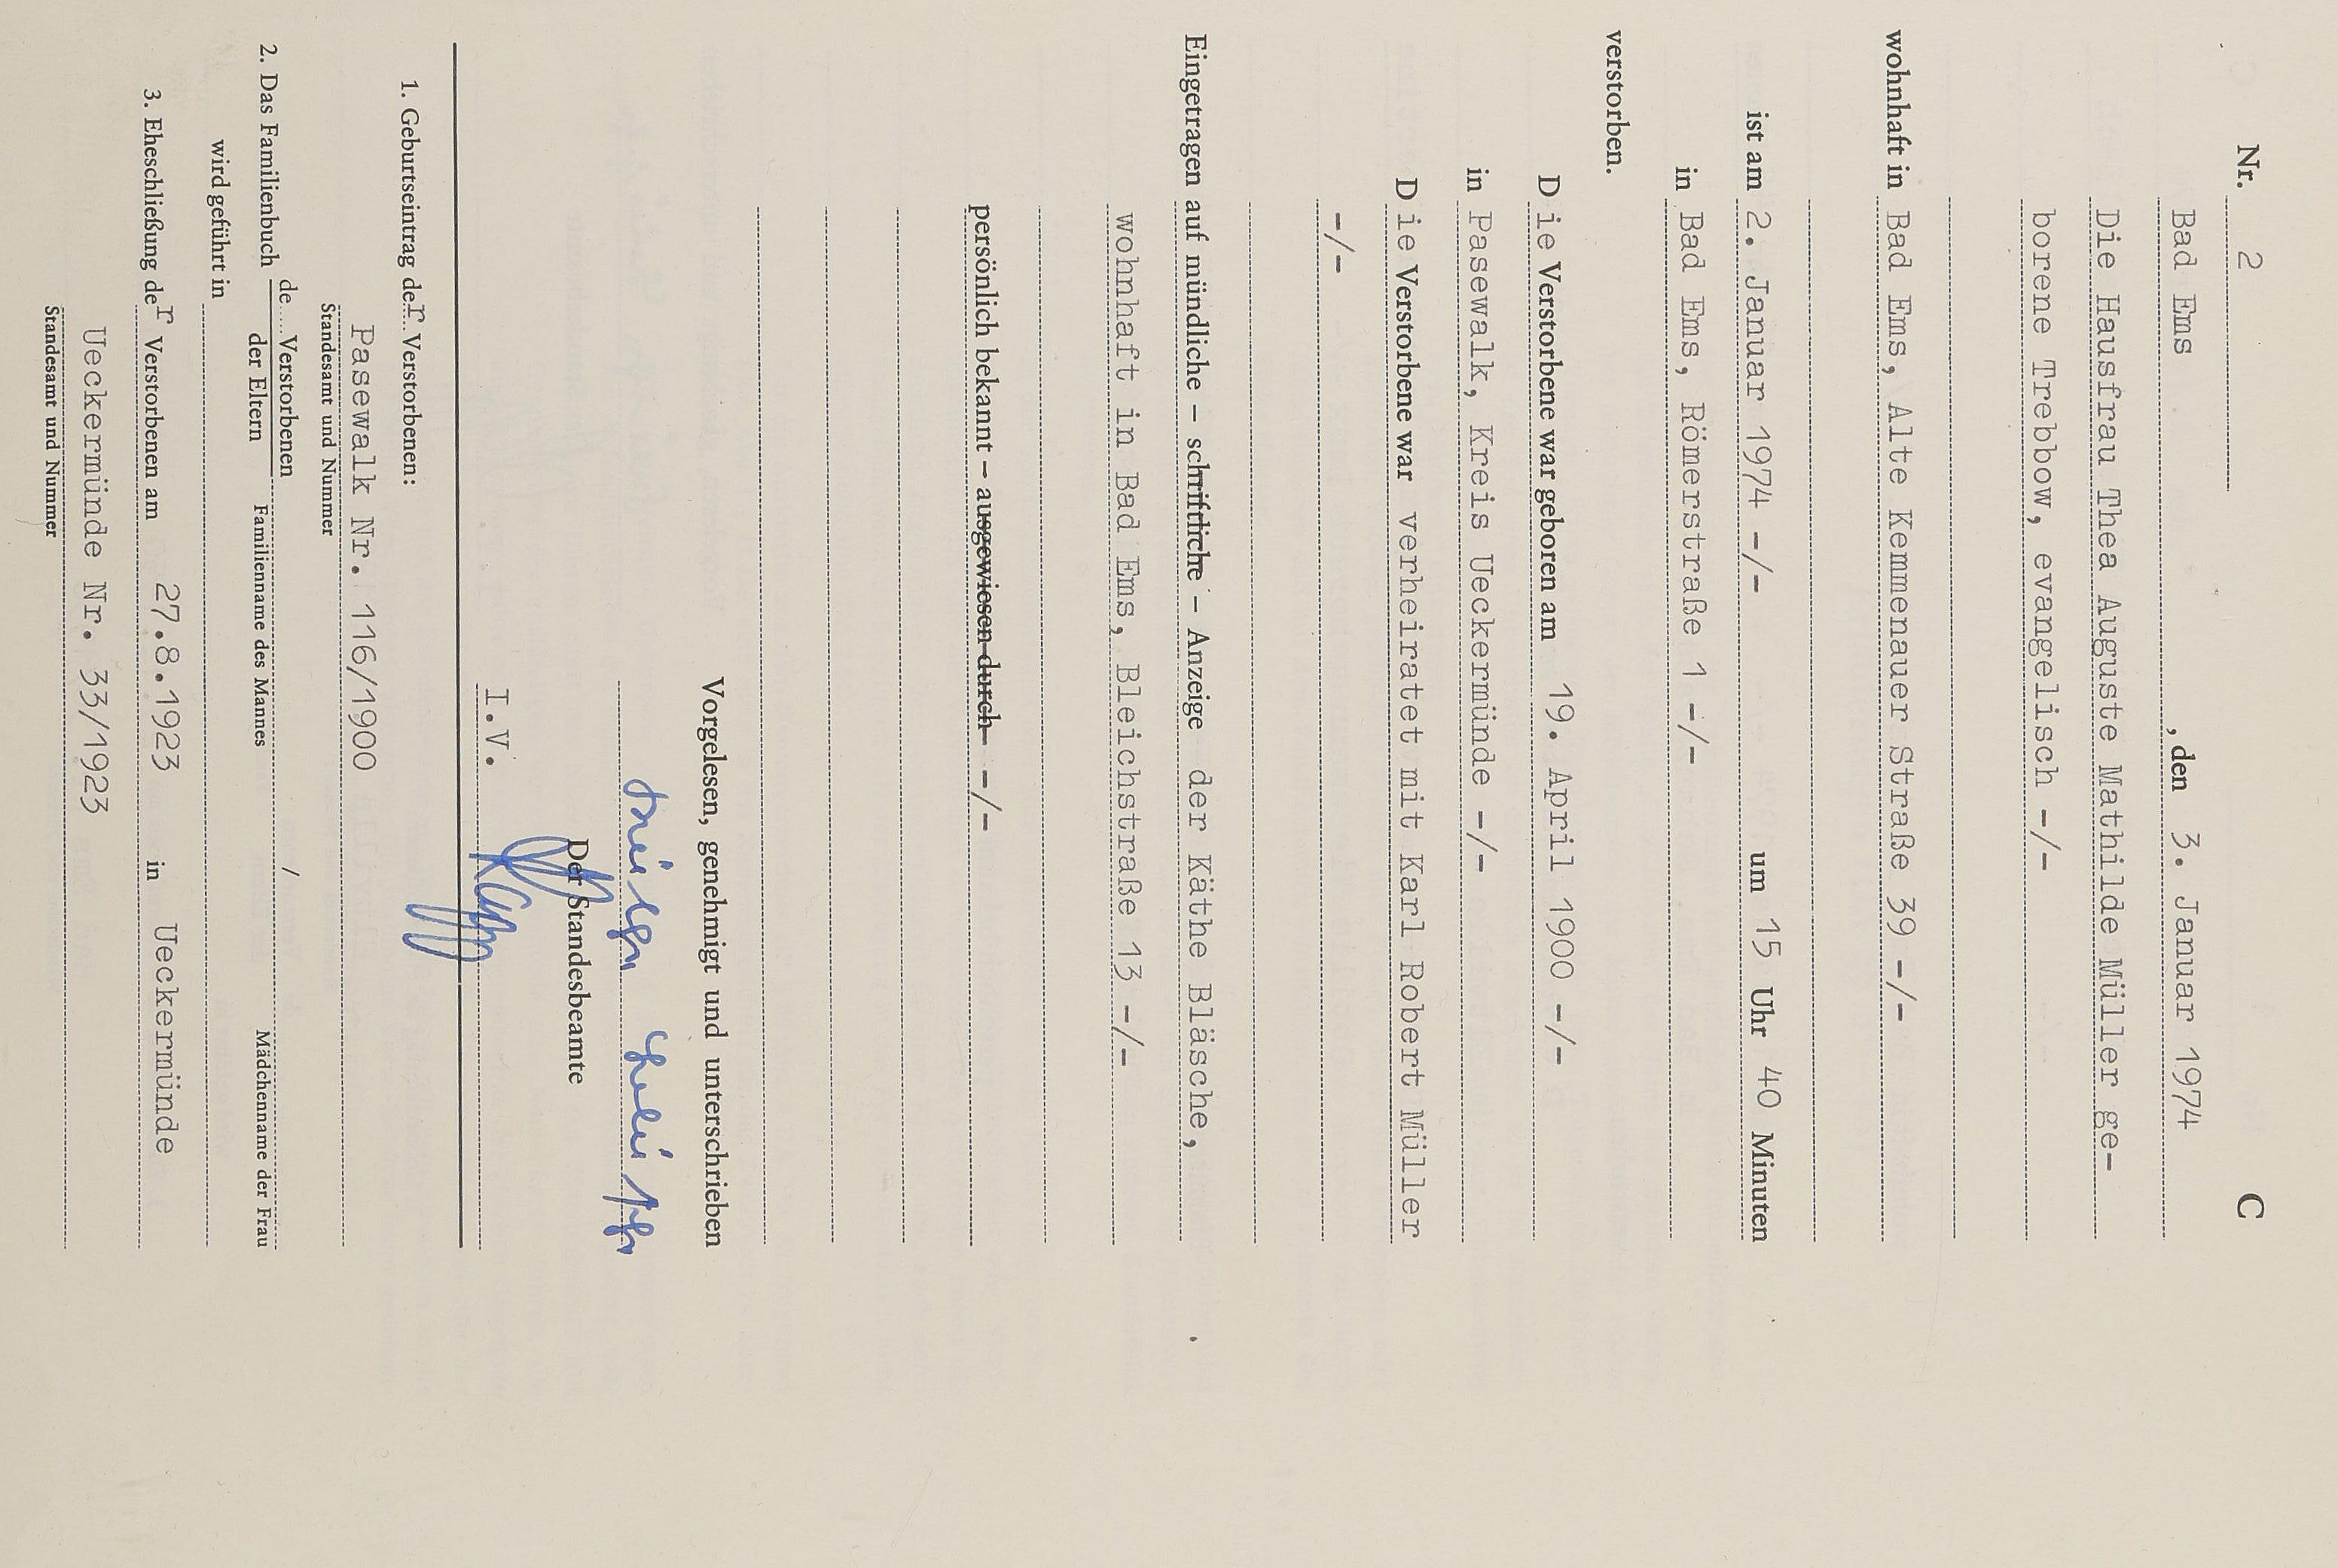 C
Nr. 2
Bad Ems, den 3. Januar 1974
Die Hausfrau Thea Auguste Mathilde Müller ge-
borene Trebbow, evangelisch -/-
wohnhaft in Bad Ems, Alte Kemmenauer Straße 39 -/-
ist am 2. Januar 1974 -/- um 15 Uhr 40 Minuten
in Bad Ems, Römerstraße 1 -/-
verstorben.
Die Verstorbene war geboren am 19. April 1900 -/-
in Pasewalk, Kreis Ueckermünde -/-
Die Verstorbene war verheiratet mit Karl Robert Müller
-/-
Eingetragen auf mündliche – schriftliche – Anzeige der Käthe Bläsche,
wohnhaft in Bad Ems, Bleichstraße 13 -/-
persönlich bekannt – ausgewiesen durch -/-
Vorgelesen, genehmigt und unterschrieben
Der Standesbeamte
I.V.
1. Geburtseintrag der Verstorbenen:
Pasewalk Nr. 116/1900
Standesamt und Nummer
2. Das Familienbuch de.... Verstorbenen /
der Eltern Familienname des Mannes Mädchenname der Frau
wird geführt in
3. Eheschließung der Verstorbenen am 27.8.1923 in Ueckermünde
Ueckermünde Nr. 33/1923
Standesamt und Nummer